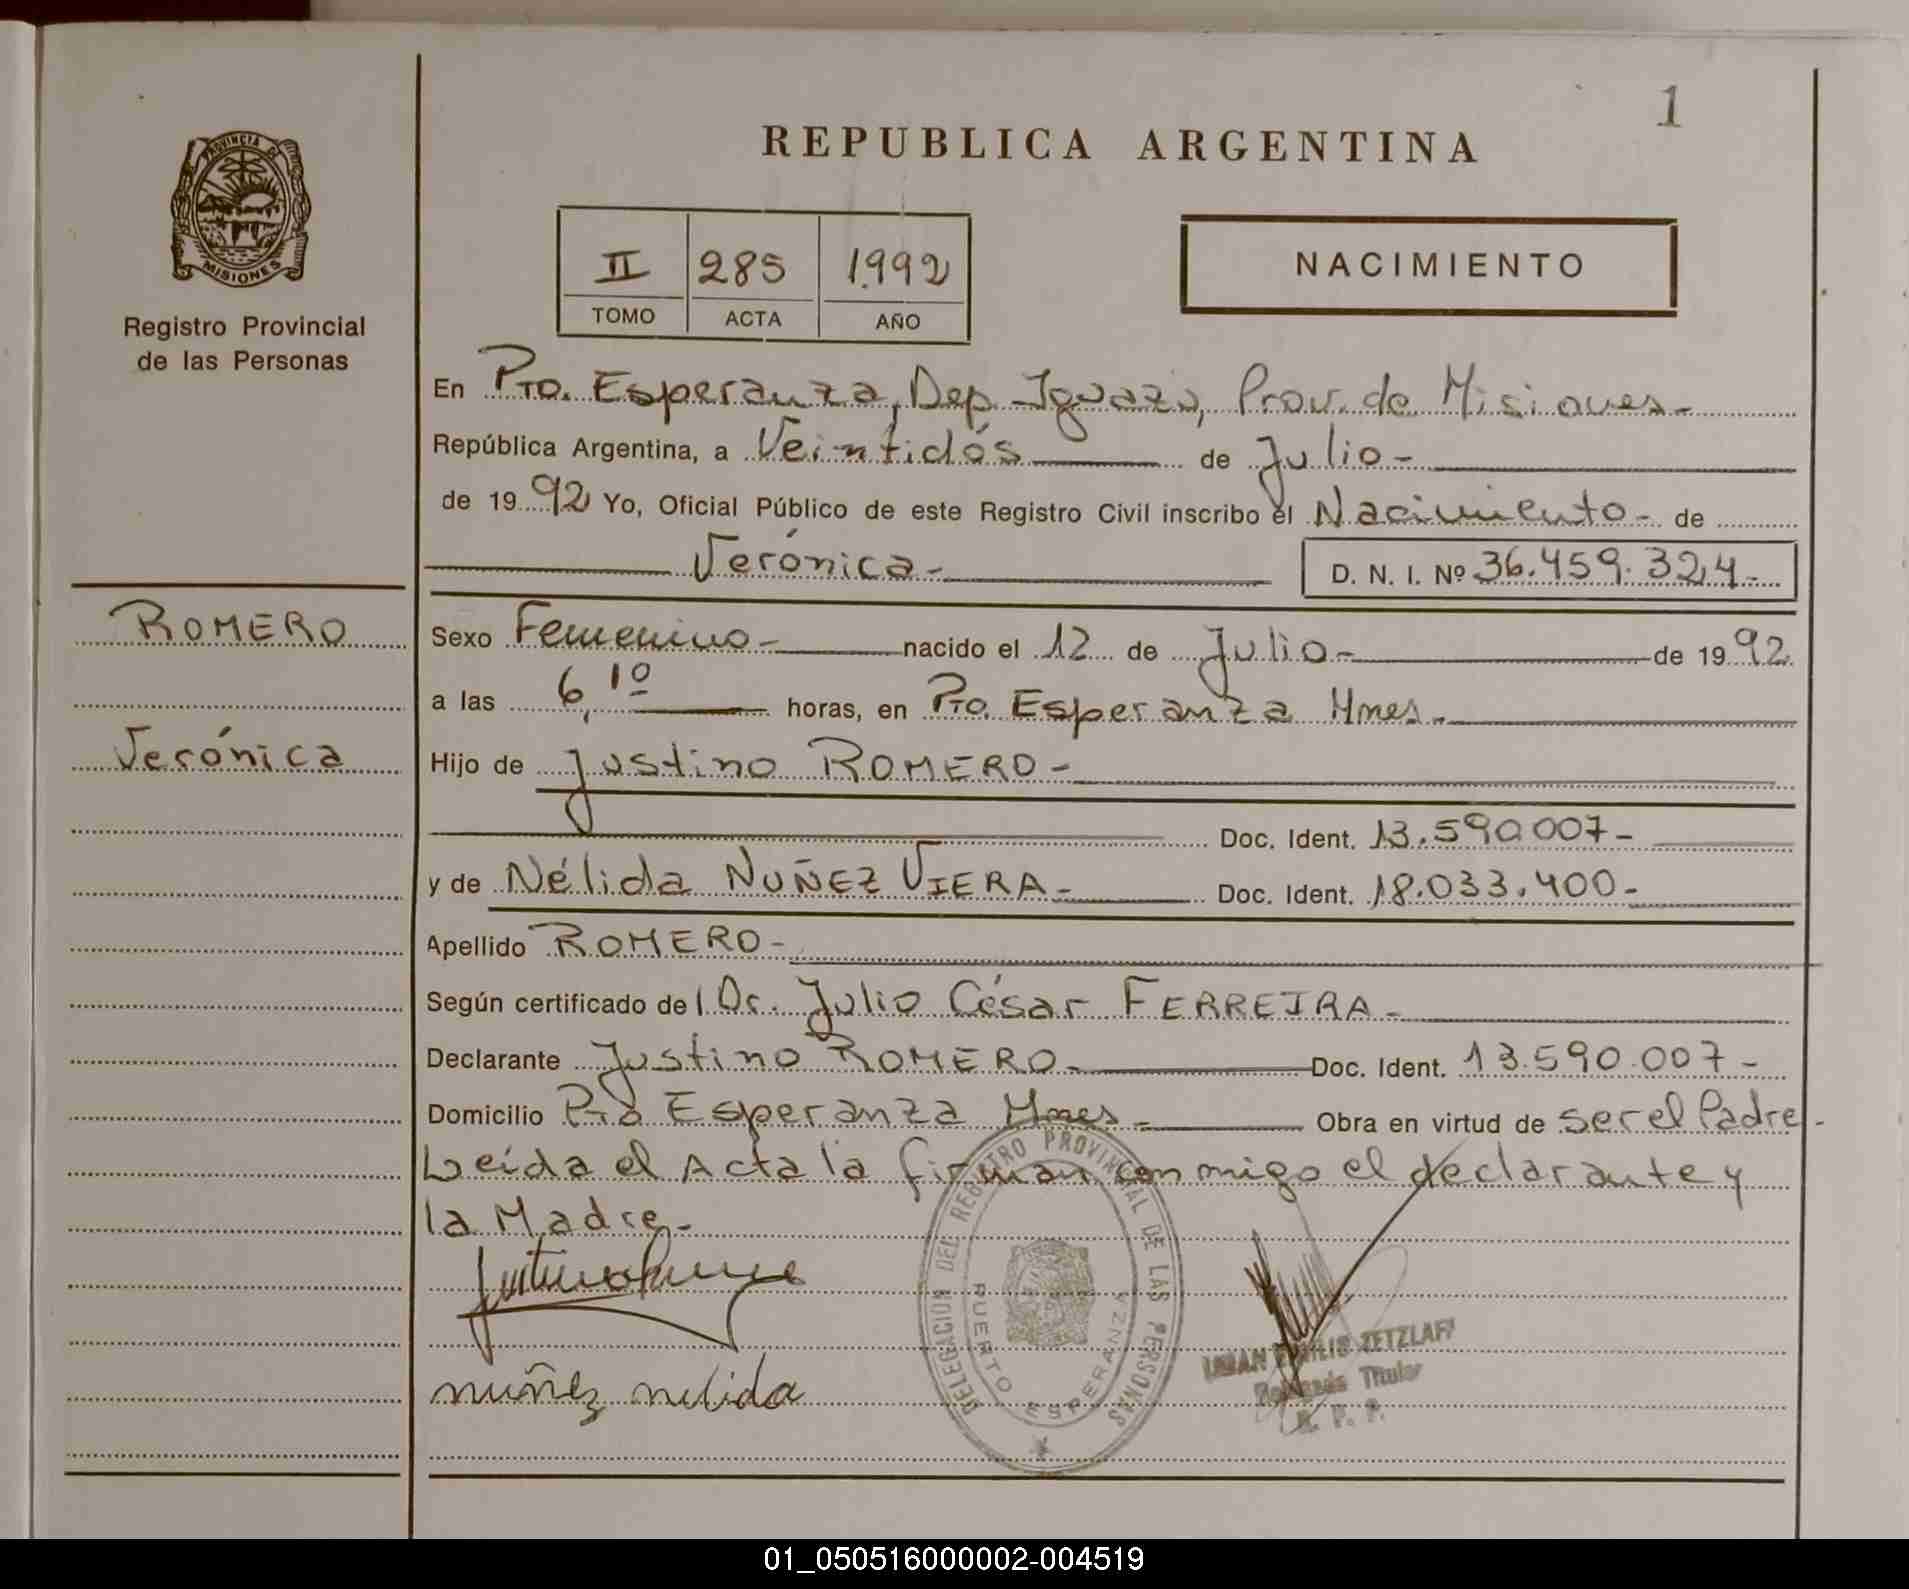 1
REPUBLICA ARGENTINA
PROVINCIA DE
MISIONES
Registro Provincial
de las Personas
II 285 1.992
TOMO ACTA AÑO
NACIMIENTO
En Pto. Esperanza, Dep. Iguazú, Prov. de Misiones-
República Argentina, a Veintidós de Julio-
de 1992 Yo, Oficial Público de este Registro Civil inscribo el Nacimiento- de
Verónica- D. N. I. Nº 36.459.324-
ROMERO
Verónica
Sexo Femenino- nacido el 12 de Julio- de 1992
a las 6,10 horas, en Pto. Esperanza Mnes.
Hijo de Justino ROMERO-
Doc. Ident. 13.590.007-
y de Nélida NUÑEZ VIERA- Doc. Ident. 18.033.400-
Apellido ROMERO-
Según certificado del Dr. Julio César FERREIRA-
Declarante Justino ROMERO- Doc. Ident. 13.590.007-
Domicilio Pto Esperanza Mnes- Obra en virtud de ser el Padre-
Leída el Acta la firman conmigo el declarante y
la Madre-
nuñez nelida
DELEGACION DEL REGISTRO PROVINCIAL DE LAS PERSONAS
PUERTO ESPERANZA
ZETZLAFF
Titular
R. P. P.
01_050516000002-004519